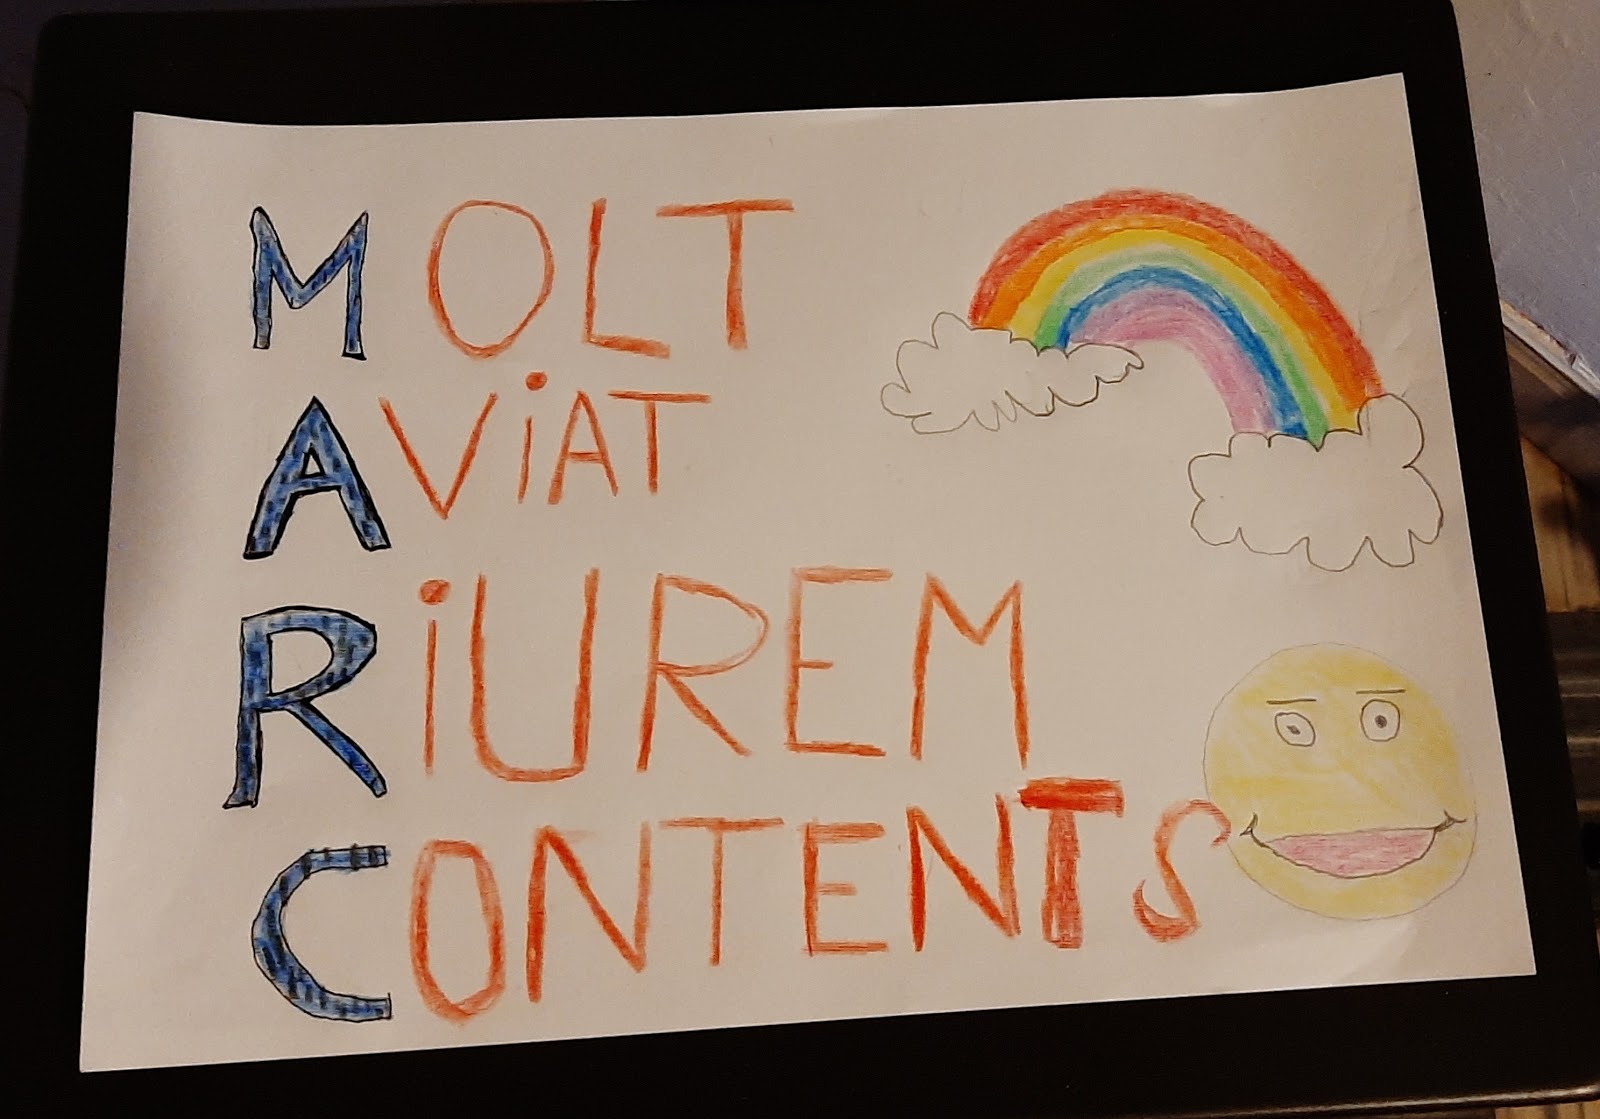 MOLT
AViAT
RiUREM
CONTENTS